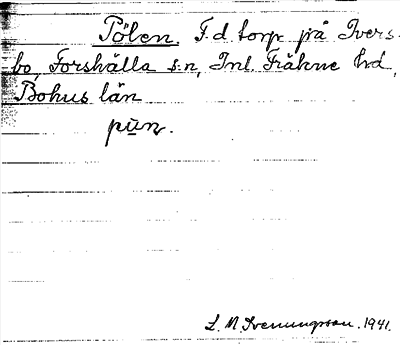 Pölen. F.d torp på Ivers-
bo, Forshälla s:n, Inl. Fräkne hd,
Bohus län
pün.
L. M. Svenungsson. 1941.